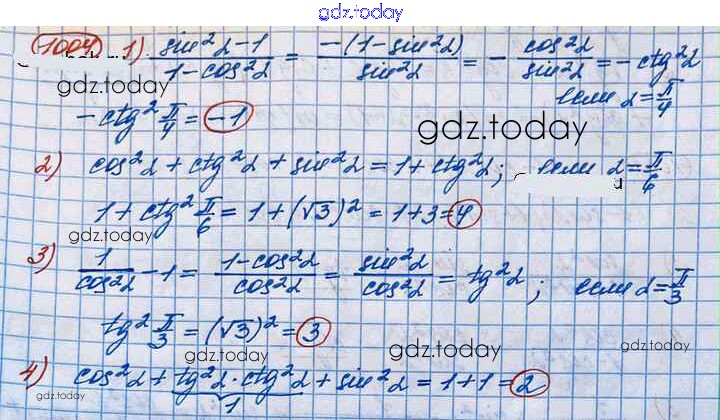 gdz.today
1004 1) (sin²α-1)/(1-cos²α) = (-(1-sin²α))/(sin²α) = - cos²α/sin²α = -ctg²α
gdz.today
если α=π/4
-ctg² π/4 = -1
gdz.today
2) cos²α + ctg²α + sin²α = 1+ctg²α; если α=π/6
1+ctg² π/6 = 1+(√3)² = 1+3=4
gdz.today
3) 1/cos²α - 1 = (1-cos²α)/cos²α = sin²α/cos²α = tg²α; если α=π/3
tg² π/3 = (√3)² = 3
gdz.today
gdz.today
gdz.today
4) cos²α + tg²α·ctg²α + sin²α = 1+1=2
1
gdz.today